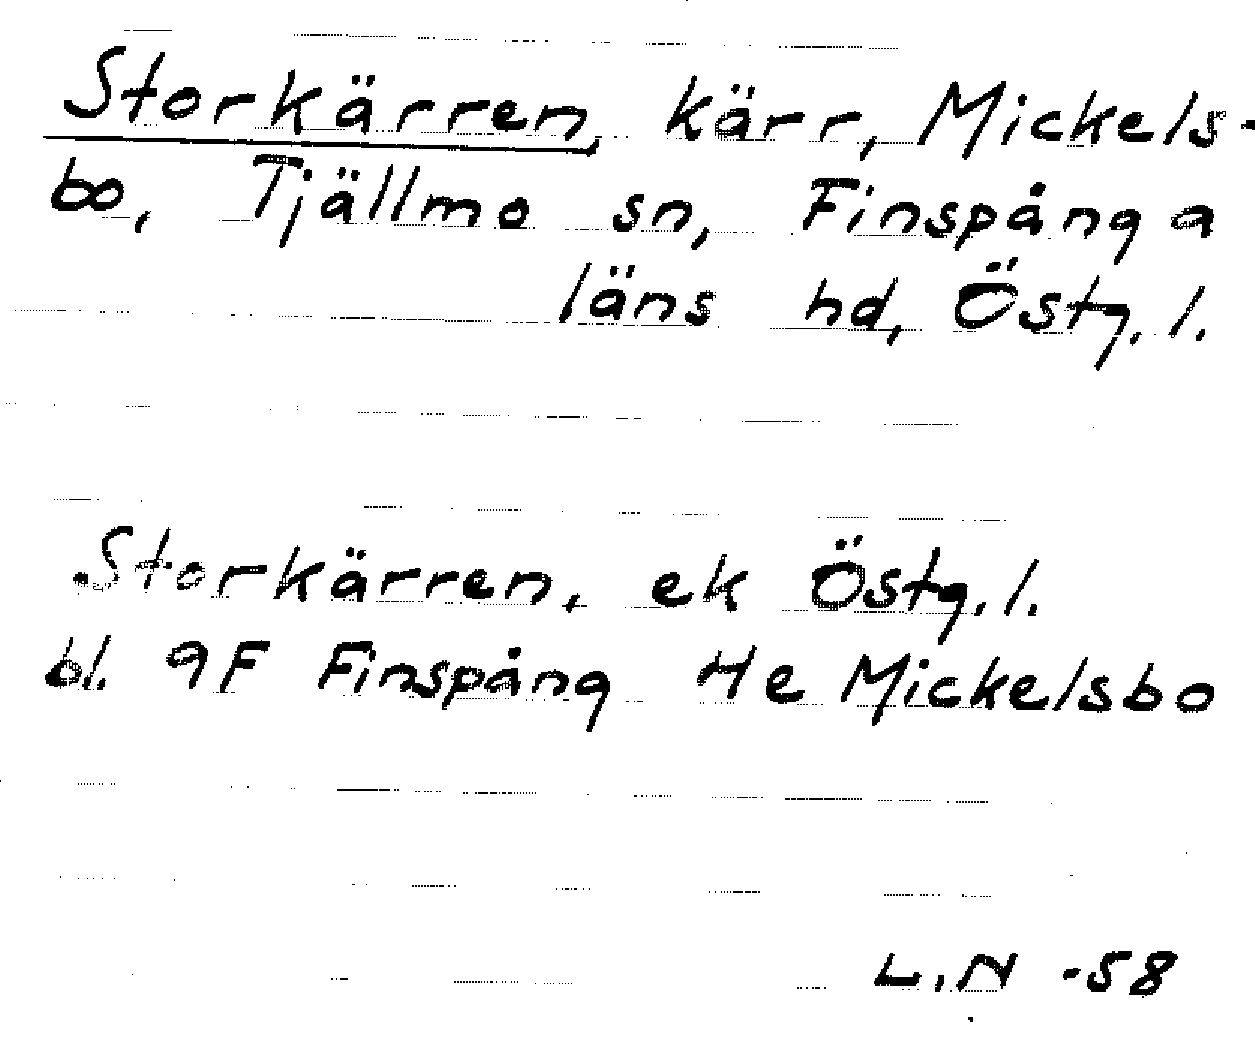 Storkärren, kärr, Mickels-
bo, Tjällmo sn, Finspånga
läns hd, Östg. l.
Storkärren, ek Östg. l.
bl. 9F Finspång 4e Mickelsbo
L.N -58